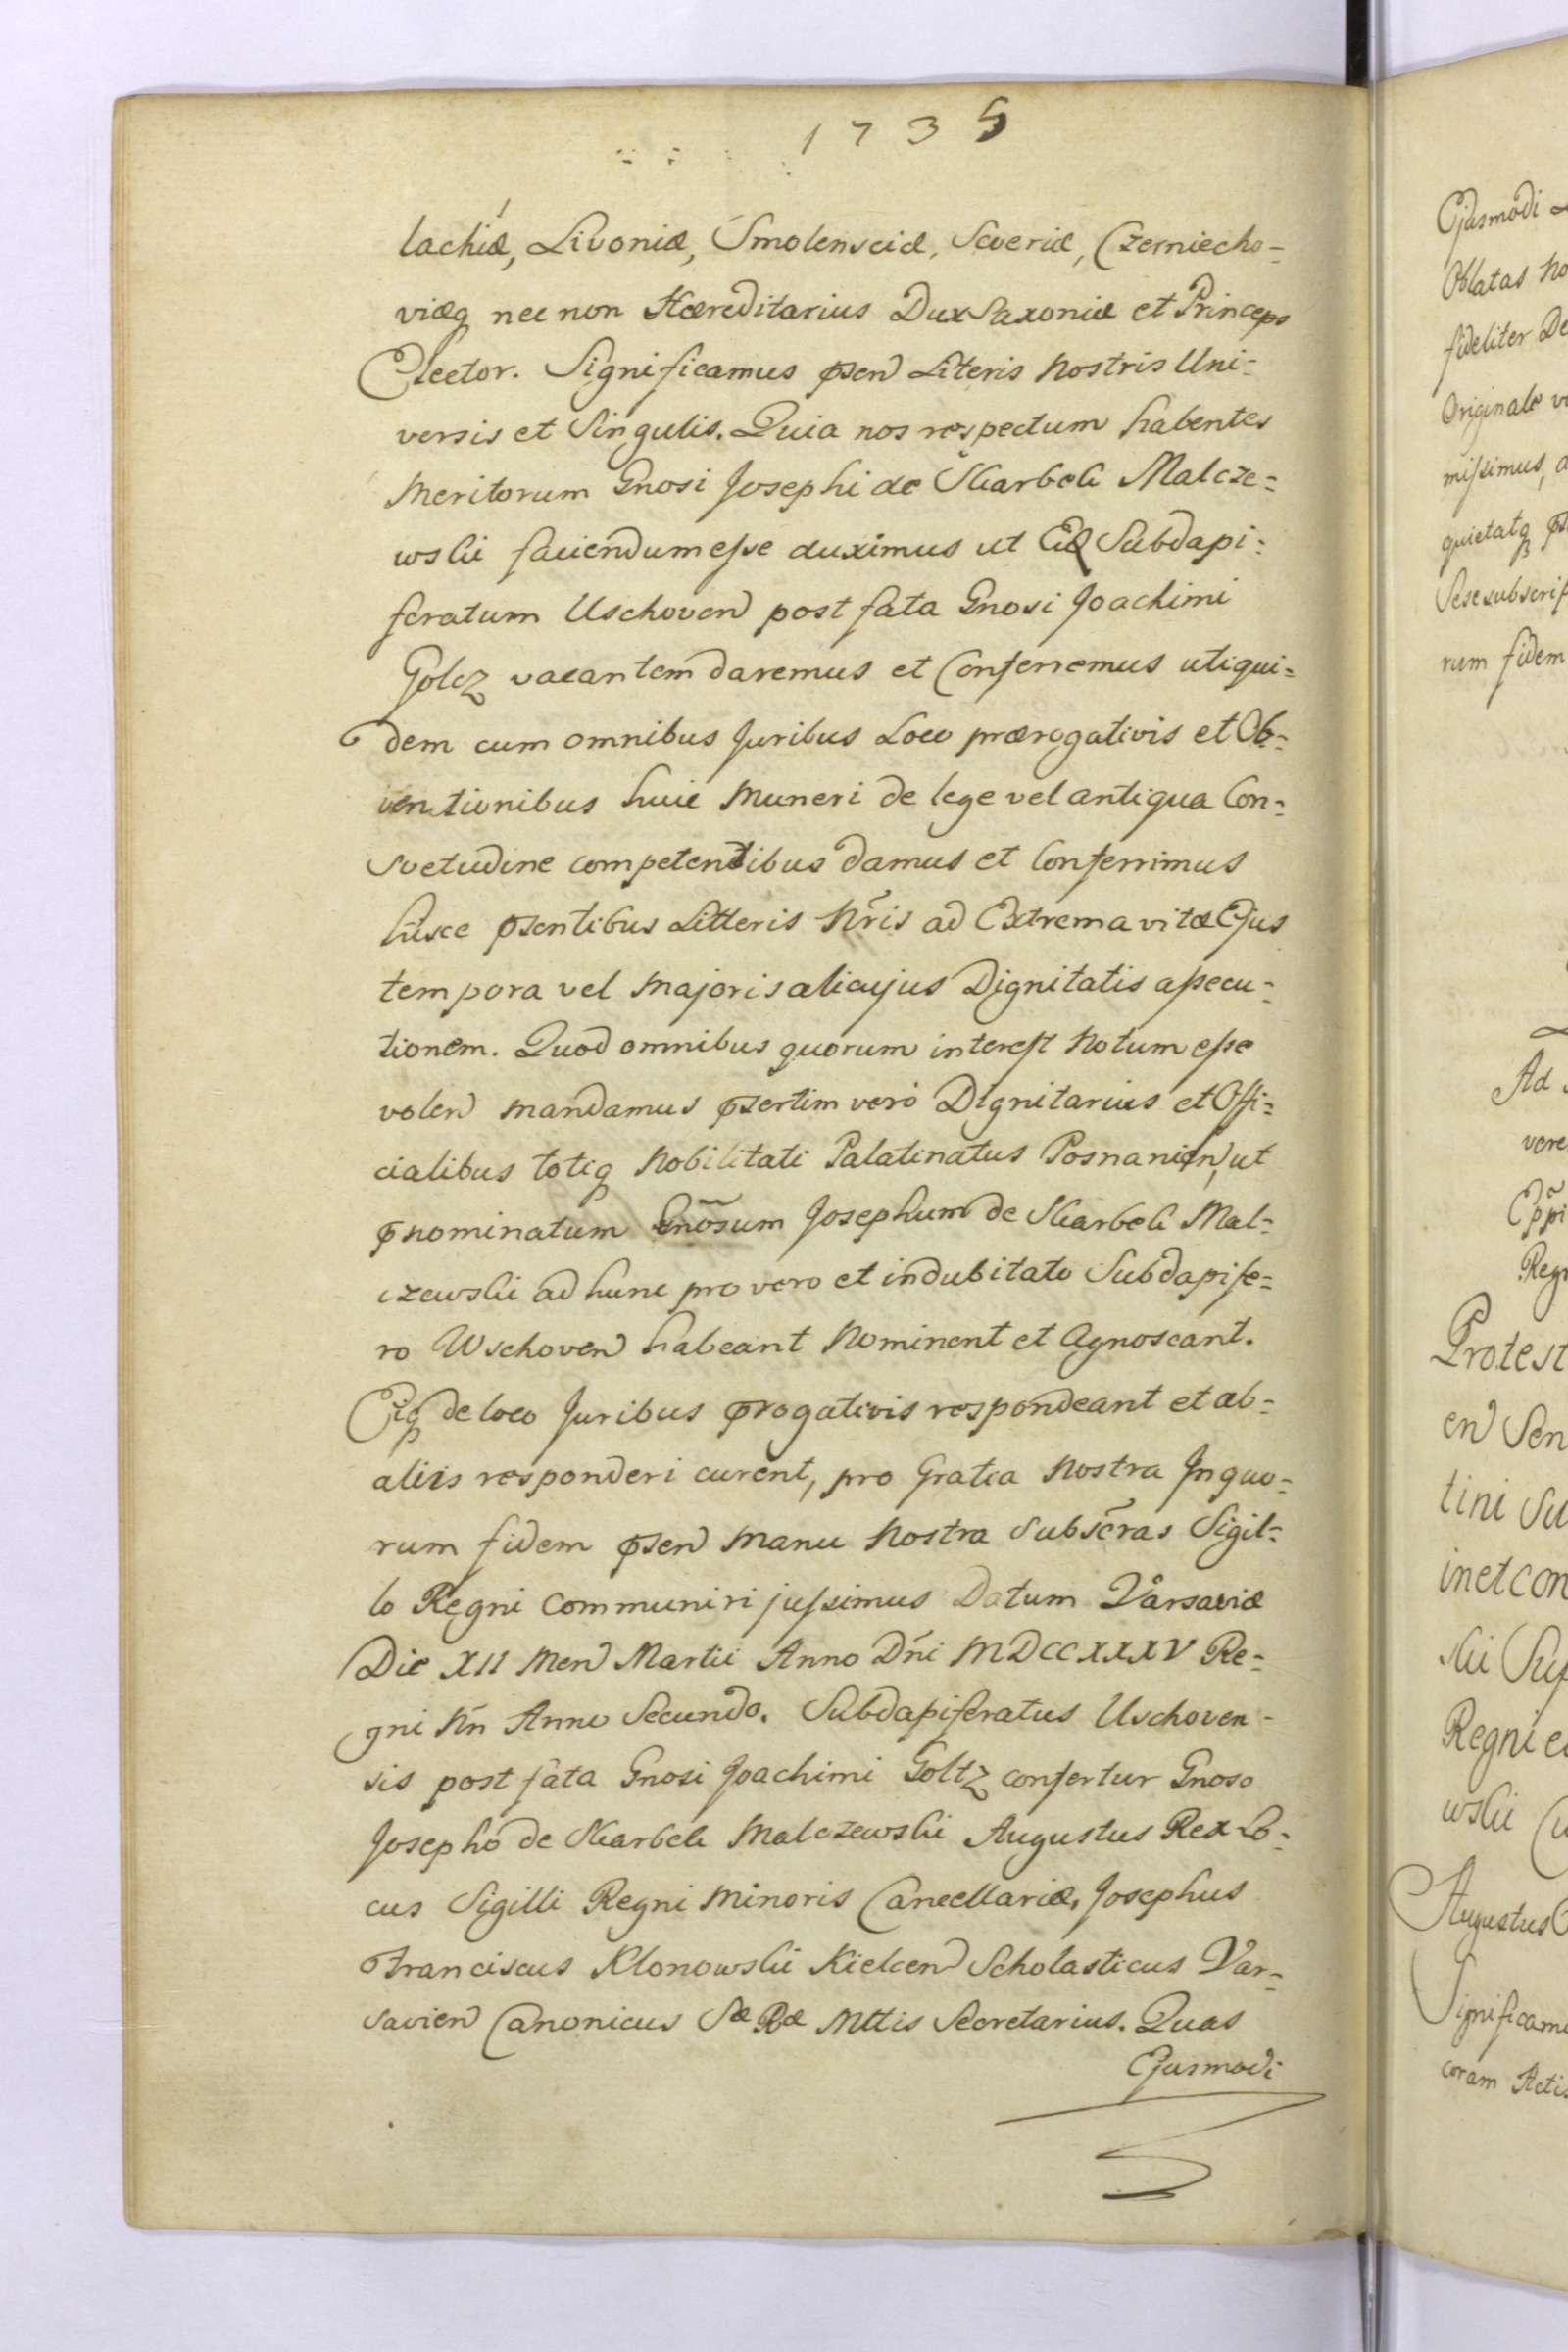 1735
lachiæ, Livoniæ, Smolensciæ, Severiæ, Czerniecho-
viæq nec non Hæreditarius Dux Saxoniæ et Princeps
Elector. Significamus psen Literis Nostris Uni-
versis et Singulis. Quia nos respectum habentes
Meritorum Gnosi Josephi de Skarbek Malcze-
wski faciendum esse duximus ut Eid Subdapi-
feratum Uschoven post fata Gnosi Joachimi
Golcz vacantem daremus et Conferremus utiqui-
dem cum omnibus Juribus Loco prærogativis et Ob-
ventionibus huic Muneri de lege vel antiqua Con-
svetudine competentibus damus et Conferrimus
hisce psentibus Litteris Nris ad Extrema vitæ Ejus
tempora vel Majoris alicujus Dignitatis assecu-
tionem. Quod omnibus quorum interest Notum esse
volen mandamus psertim vero Dignitariis et Offi-
cialibus totiq Nobilitati Palatinatus Posnanien, ut
pnominatum Gnosum Josephum de Skarbek Mal-
czewski ad hunc pro vero et indubitato Subdapife-
ro Wschoven habeant Nominent et Agnoscant.
Eiq de loco Juribus progativis respondeant et ab-
aliis responderi curent, pro Gratia Nostra In quo-
rum fidem psen Manu Nostra Subscras Sigil-
lo Regni Communiri jussimus Datum Varsaviæ
Die XII Men Martii Anno Dni MDCCXXXV Re-
gni Nri Anno Secundo. Subdapiferatus Uschoven-
sis post fata Gnosi Joachimi Goltz confertur Gnoso
Josepho de Skarbek Malczewski Augustus Rex Lo-
cus Sigilli Regni Minoris Cancellariæ, Josephus
Franciscus Klonowski Kielcen Scholasticus Var-
savien Canonicus Sæ Ræ Mttis Secretarius. Quas
Ejusmodi
Ejusmodi
Oblatas
fideliter
Originale
missimus,
quietatq
Sese subscrip
rum fidem
Ad
vere
Regn
Protest
en Sen
tini Su
inet con
ski Sup
Regni
wski
Augustus
Significam
coram Actis